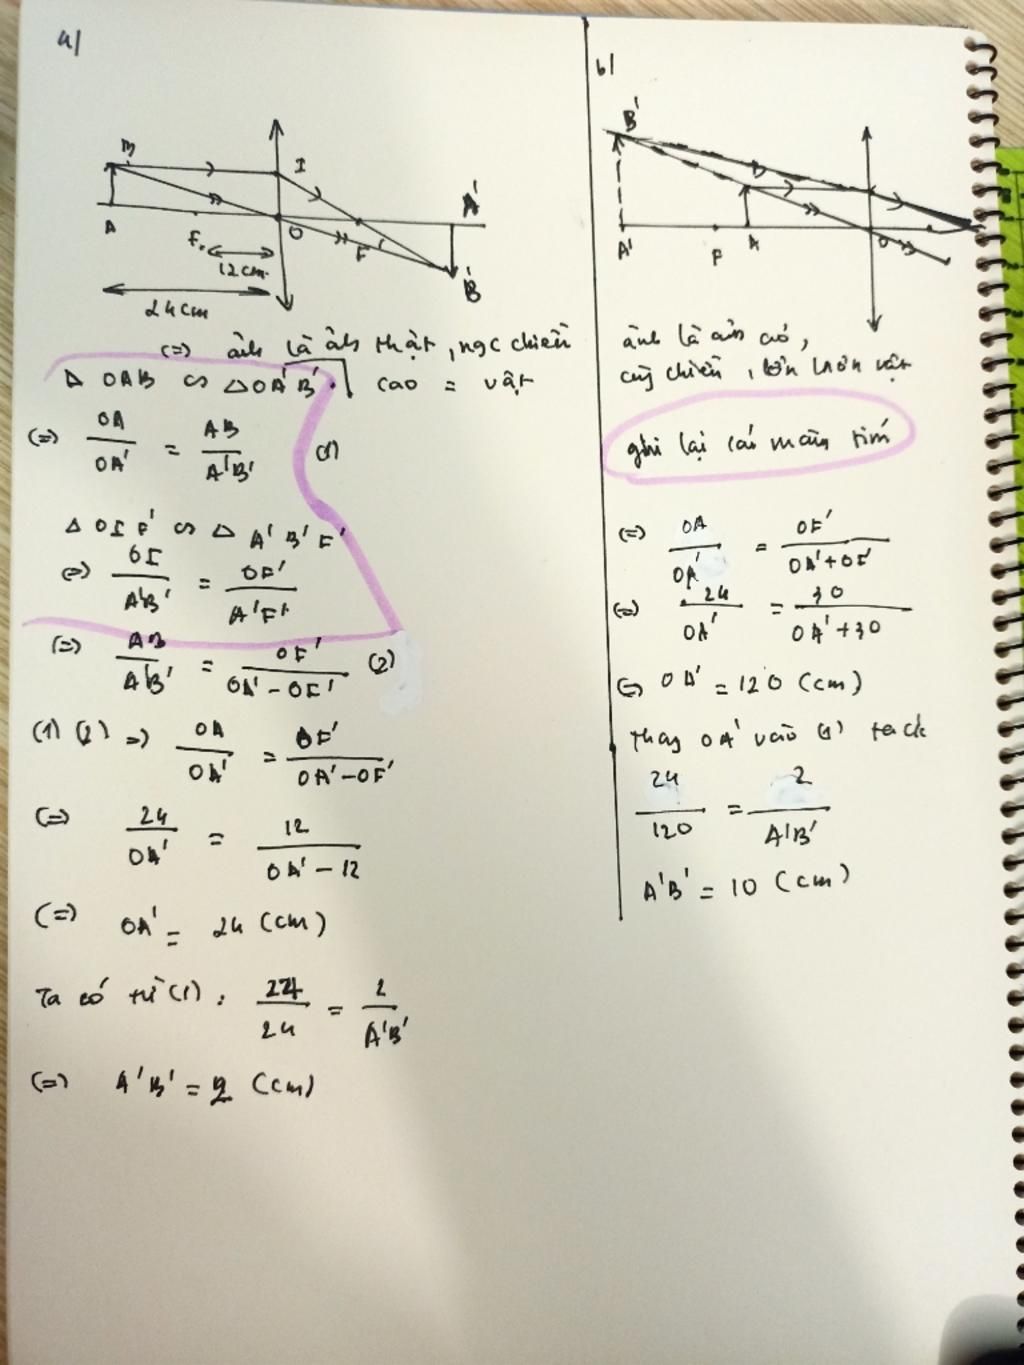 a/
B
I
A'
A
F
O
F'
12cm
B'
24cm
(=) ảnh là ảnh thật, ngc chiều
cao = vật
Δ OAB ∽ Δ OA'B'
(=) OA/OA' = AB/A'B' (1)
Δ OIF' ∽ Δ A'B'F'
(=) OI/A'B' = OF'/A'F'
(=) AB/A'B' = OF'/OA'-OF' (2)
(1) (2) => OA/OA' = OF'/OA'-OF'
(=) 24/OA' = 12/OA'-12
(=) OA' = 24 (cm)
Ta có từ (1): 24/24 = 2/A'B'
(=) A'B' = 2 (cm)
b/
B'
B
A'
F
A
O
ảnh là ảnh ảo,
cùng chiều, lớn hơn vật
ghi lại cái màu tím
(=) OA/OA' = OF'/OA'+OF'
(=) 24/OA' = 30/OA'+30
(=) OA' = 120 (cm)
Thay OA' vào (1) ta đc
24/120 = 2/A'B'
A'B' = 10 (cm)